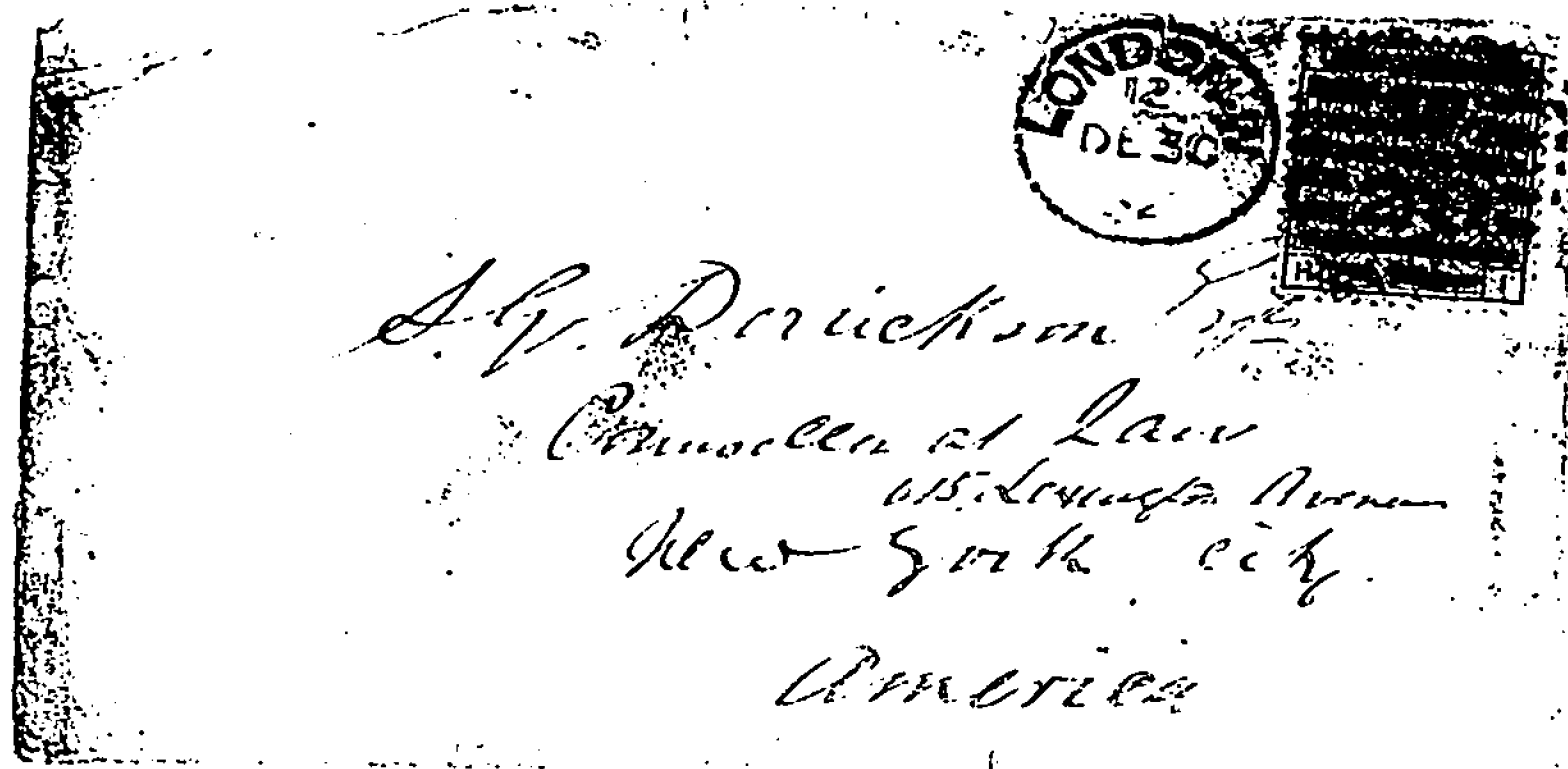 LONDON
12
DE 30
S. G. Derickson Esq
Counsellor at Law
615. Lexington Avenue
New York City.
America